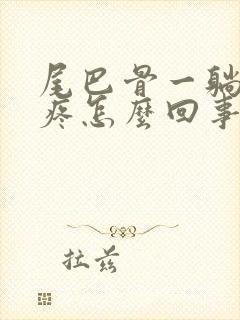 尾巴骨一躺
疼怎麼回事
拉兹